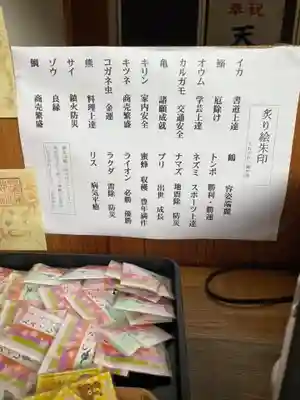 奉祝
天
炙り絵朱印
イカ 書道上達
鰯 厄除け
オウム 学芸上達
カルガモ 交通安全
亀 諸願成就
キリン 家内安全
キツネ 商売繁盛
コガネ虫 金運
熊 料理上達
サイ 鎮火防災
ゾウ 良縁
鯛 商売繁盛
鶴 容姿端麗
トンボ 勝利・勝運
ネズミ スポーツ上達
ナマズ 地震除 防災
ブリ 出世 成長
蜜蜂 収穫 豊年満作
ライオン 必勝 優勝
ラクダ 雷除 防災
リス 病気平癒